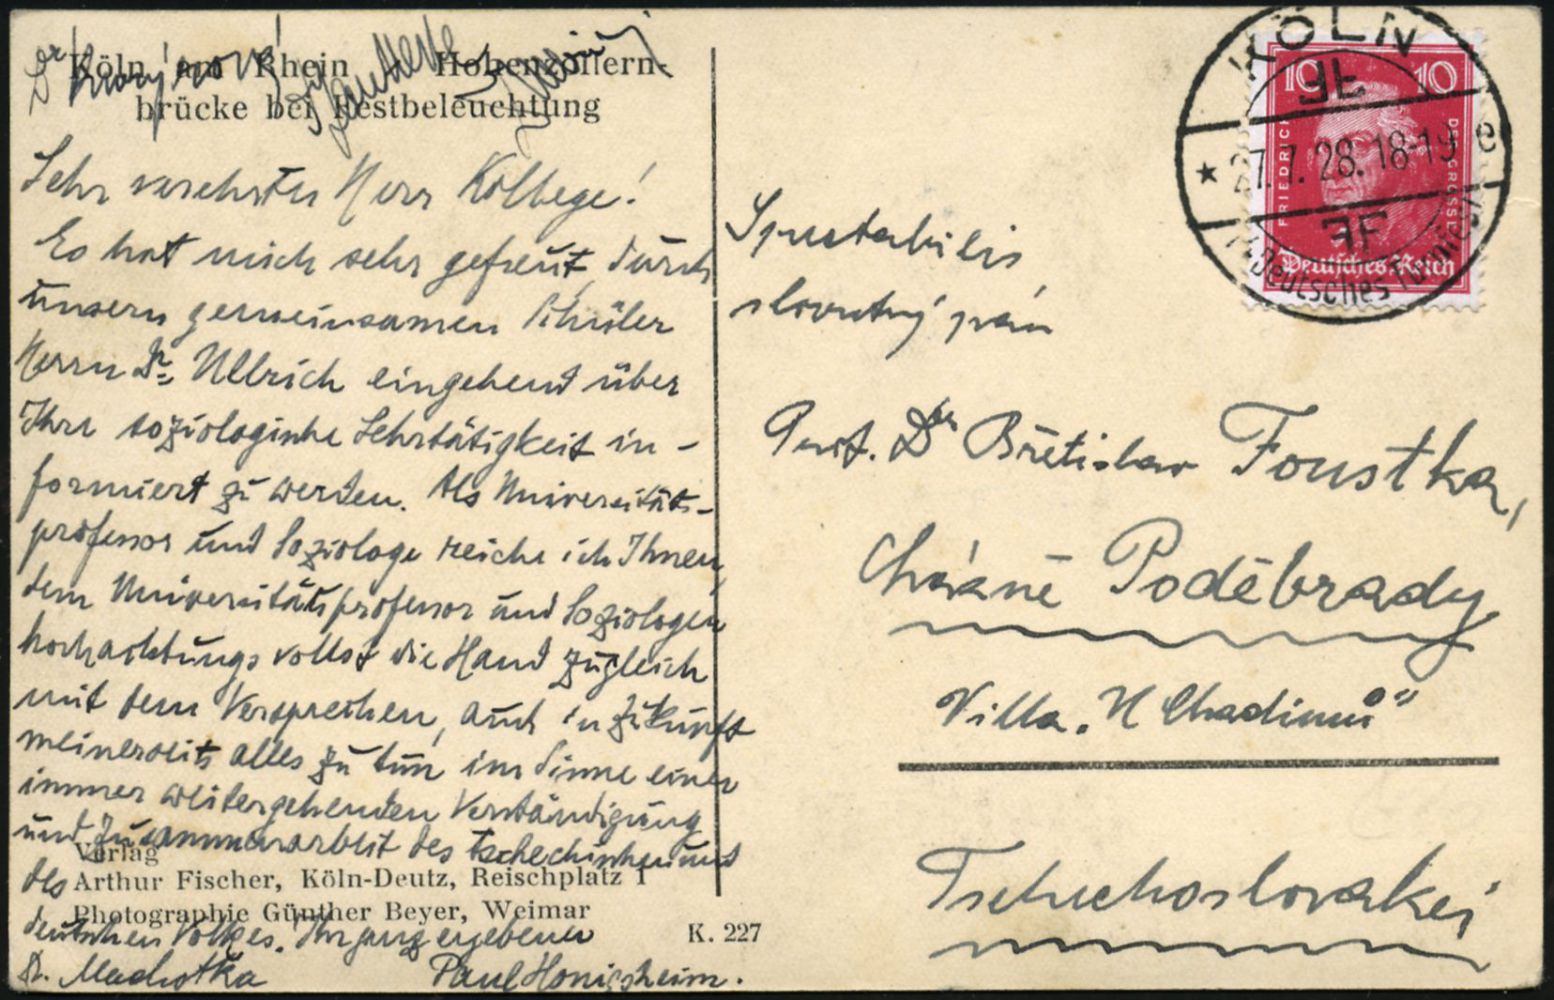 Köln am Rhein Hohenzollern-
brücke bei Festbeleuchtung
Sehr verehrter Herr Kollege!
Es hat mich sehr gefreut, durch
unsern gemeinsamen Schüler
Herrn Dr. Ullrich eingehend über
Ihre soziologische Lehrtätigkeit in-
formiert zu werden. Als Universitäts-
professor und Soziologe reiche ich Ihnen,
dem Universitätsprofessor und Soziologen
hochachtungsvollst die Hand zugleich
mit dem Versprechen, auch in Zukunft
meinerseits alles zu tun im Sinne einer
immer weitergehenden Verständigung
und Zusammenarbeit des tschechischen und
des
deutschen Volkes. Ihr ganz ergebener
Dr. Machotka Paul Honigsheim.
Verlag
Arthur Fischer, Köln-Deutz, Reischplatz 1
Photographie Günther Beyer, Weimar
K. 227
KÖLN
* 27.7.28.18-19 e
Deutsches Turnfest
10 10
FRIEDRICH DER GROSSE
Deutsches Reich
Spectabilis
slovutný pán
Prof. Dr Břetislav Foustka,
Lázně Poděbrady
Villa „U Chadimů"
Tschechoslovakei